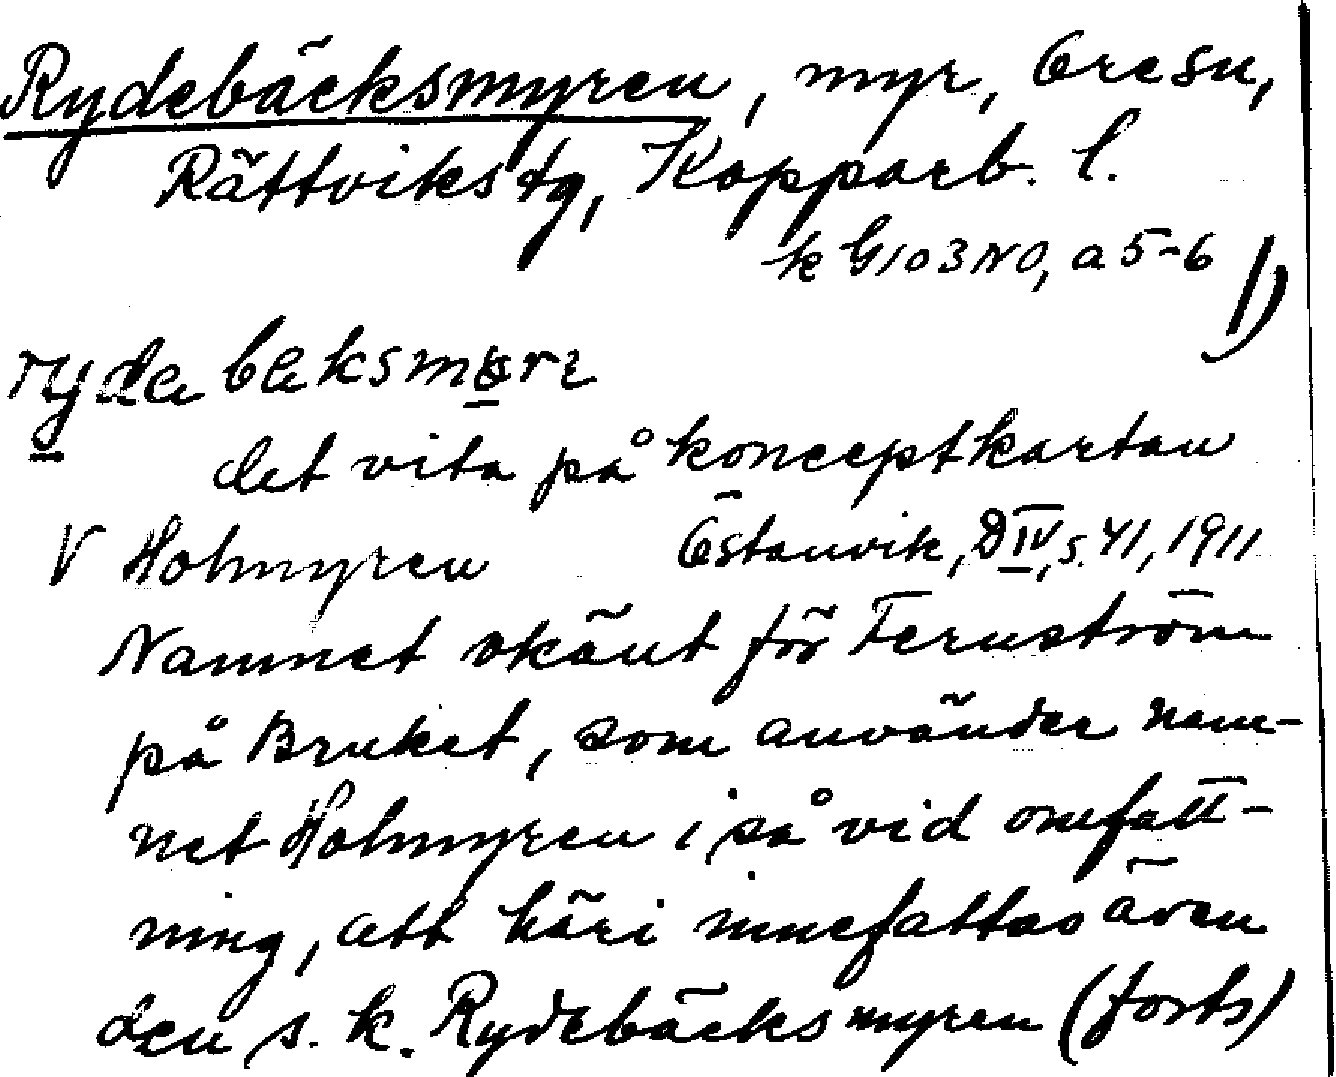 Rydebäcksmyren, myr, Ore sn,
Rättviks tg, Kopparb. l.
k G103NO, a5-6 1)
ryde bäksmyrɩ
det vita på konceptkartan
V Holmyren Östanvik, D IV, s. 41, 1911
Namnet okänt för Fernström
på Bruket, som använder nam-
net Holmyren i så vid omfatt-
ning, att häri innefattas även
den s.k. Rydebäcksmyren (forts)